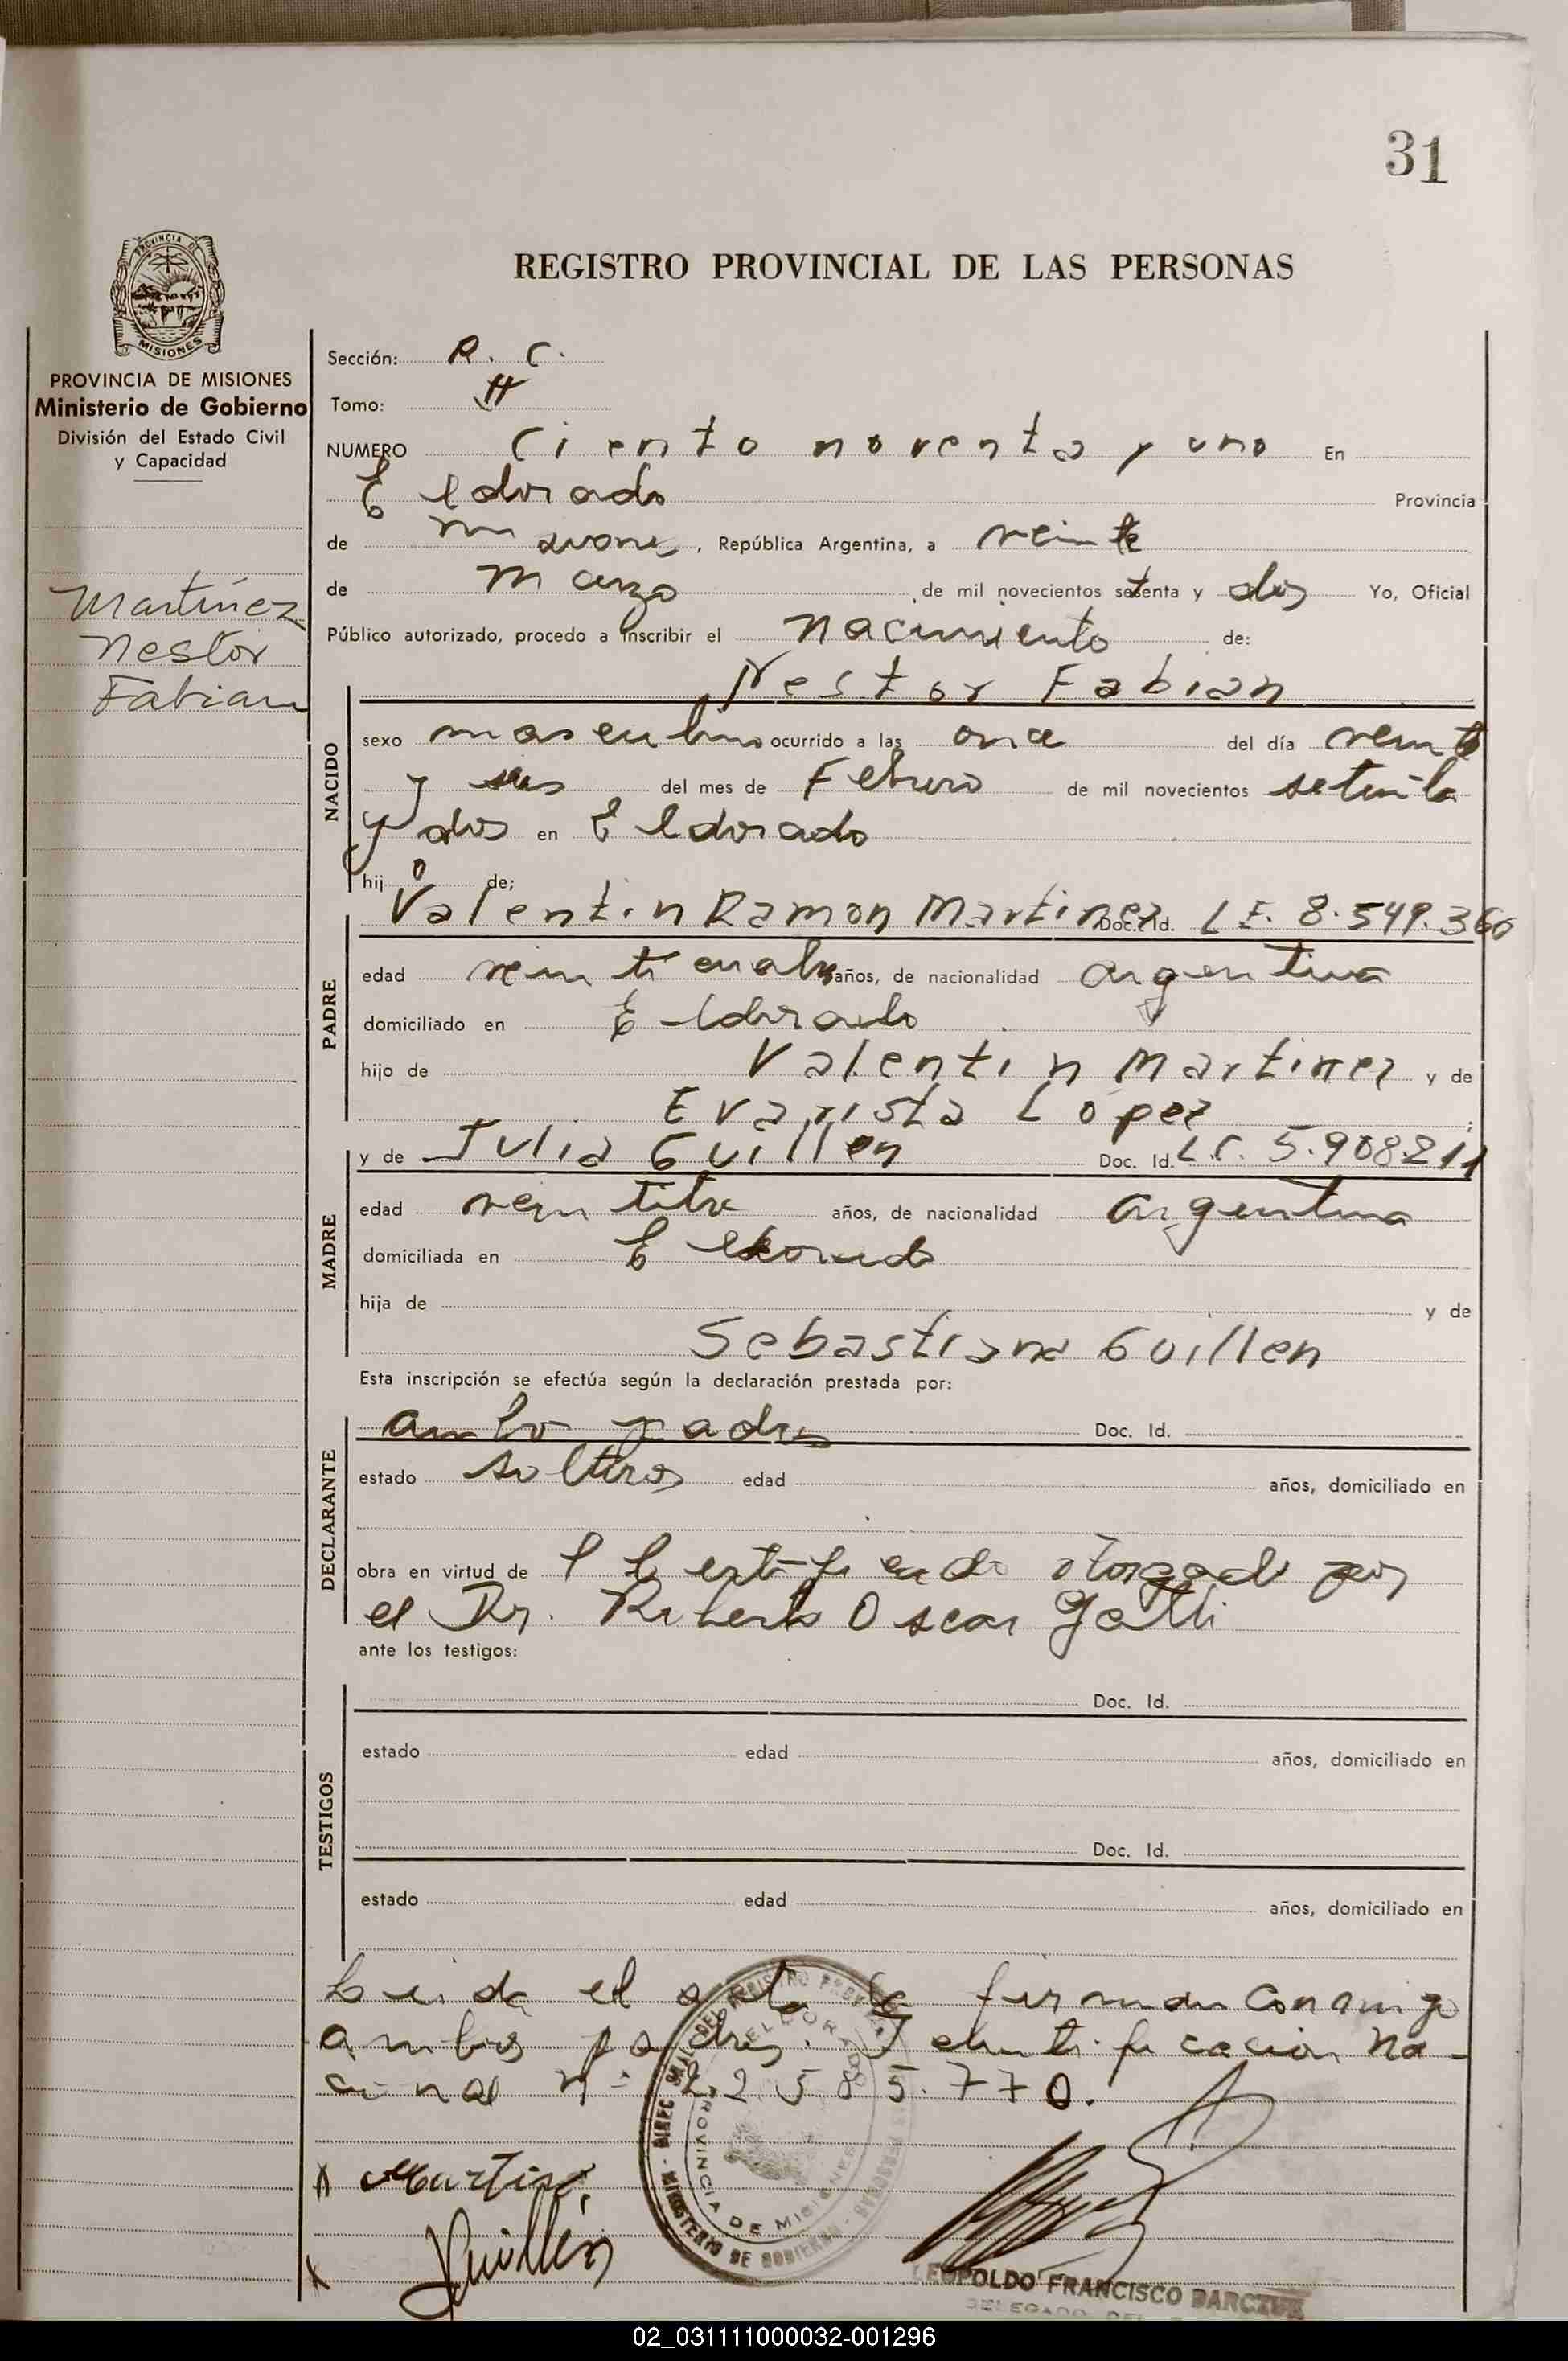 31
PROVINCIA DE
MISIONES
REGISTRO PROVINCIAL DE LAS PERSONAS
PROVINCIA DE MISIONES
Ministerio de Gobierno
División del Estado Civil
y Capacidad
Martínez
Nestor
Fabian
Sección: R. C.
Tomo: II
NUMERO Ciento noventa y uno En
Eldorado Provincia
de Misiones, República Argentina, a veinte
de Marzo de mil novecientos setenta y dos Yo, Oficial
Público autorizado, procedo a inscribir el nacimiento de:
Nestor Fabian
NACIDO
sexo masculino ocurrido a las once del día veinte
y seis del mes de Febrero de mil novecientos setenta
y dos en Eldorado
hijo de;
PADRE
Valentin Ramon Martinez Doc. Id. L E. 8.549.360
edad veinticuatro años, de nacionalidad argentina
domiciliado en Eldorado
hijo de Valentin Martinez y de
Evarista López
MADRE
y de Julia Guillen Doc. Id. L C. 5.908211
edad veintitre años, de nacionalidad argentina
domiciliada en Eldorado
hija de y de
Sebastiana Guillen
Esta inscripción se efectúa según la declaración prestada por:
DECLARANTE
ambo padres Doc. Id.
estado solteros edad años, domiciliado en
obra en virtud de l certificado otorgado por
el Dr. Roberto Oscar Gatti
ante los testigos:
TESTIGOS
Doc. Id.
estado edad años, domiciliado en
Doc. Id.
estado edad años, domiciliado en
Leida el acta la firman conmigo
ambos padres. Identificacion Na-
cional n= 22.585.770.
ELDORADO
PROVINCIA DE MISIONES
MINISTERIO DE GOBIERNO
Martinez
Guillén
LEOPOLDO FRANCISCO
DELEGADO DEL
02_031111000032-001296